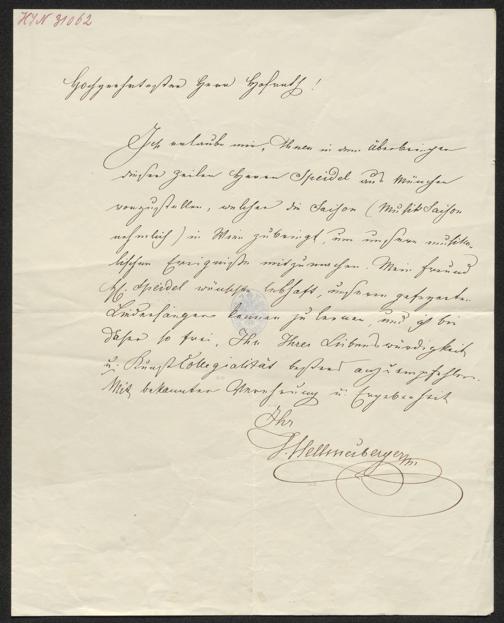 HIN 31062
Hochgeehrtester Herr Hofrath!
Ich erlaube mir, Ihnen in dem Überbringer
dieser Zeilen Herrn Speidel aus München
vorzustellen, welcher die Saison (Musik Saison
nehmlich) in Wien zubringt, um unsere musika-
lischen Ereignisse mitzumachen. Mein Freund
H. Speidel wünscht lebhaft, unseren gefeyerten
Liedersänger kennen zu lernen, und ich bin
daher so frei, Ihn Ihrer Liebenswürdigkeit
u. Kunst Collegialität bestens anzuempfehlen.
Mit bekannter Verehrung u. Ergebenheit
Ihr
J. Hellmesberger